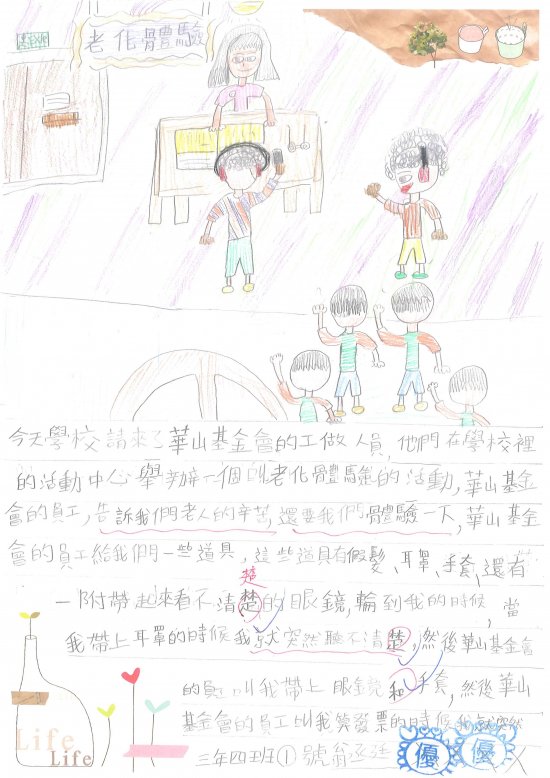 老化骨體驗
今天學校請來了華山基金會的工做人員,他們在學校裡
的活動中心舉辦一個叫老化骨體驗的活動,華山基金
會的員工,告訴我們老人的辛苦,還要我們骨體驗一下,華山基金
會的員工給我們一些道具,這些道具有假髮、耳罩、手套,還有
楚
一附帶起來看不清楚的眼鏡,輪到我的時候,當
我帶上耳罩的時候我就突然聽不清楚,然後華山基金會
的員叫我帶上眼鏡和手套,然後華山
基金會的員工叫我算發票的時候我就突然
三年四班①號翁丞廷
優 優
Life
Life